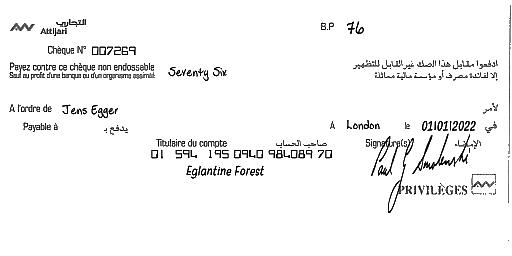 التجاري
Attijari
B.P 76
Chèque N° 007269
Payez contre ce chèque non endossable
Sauf au profit d'une banque ou d'un organisme assimilé
Seventy Six
ادفعوا مقابل هذا الصك غير القابل للتظهير
إلا لفائدة مصرف أو مؤسسة مالية مماثلة
A l'ordre de Jens Egger
لأمر
Payable à يدفع بـ
A London le 01/01/2022 في
Titulaire du compte صاحب الحساب
Signature(s) الإمضاء
01 594 195 0940 984089 70
Eglantine Forest
Paul J Smolenski
PRIVILÈGES